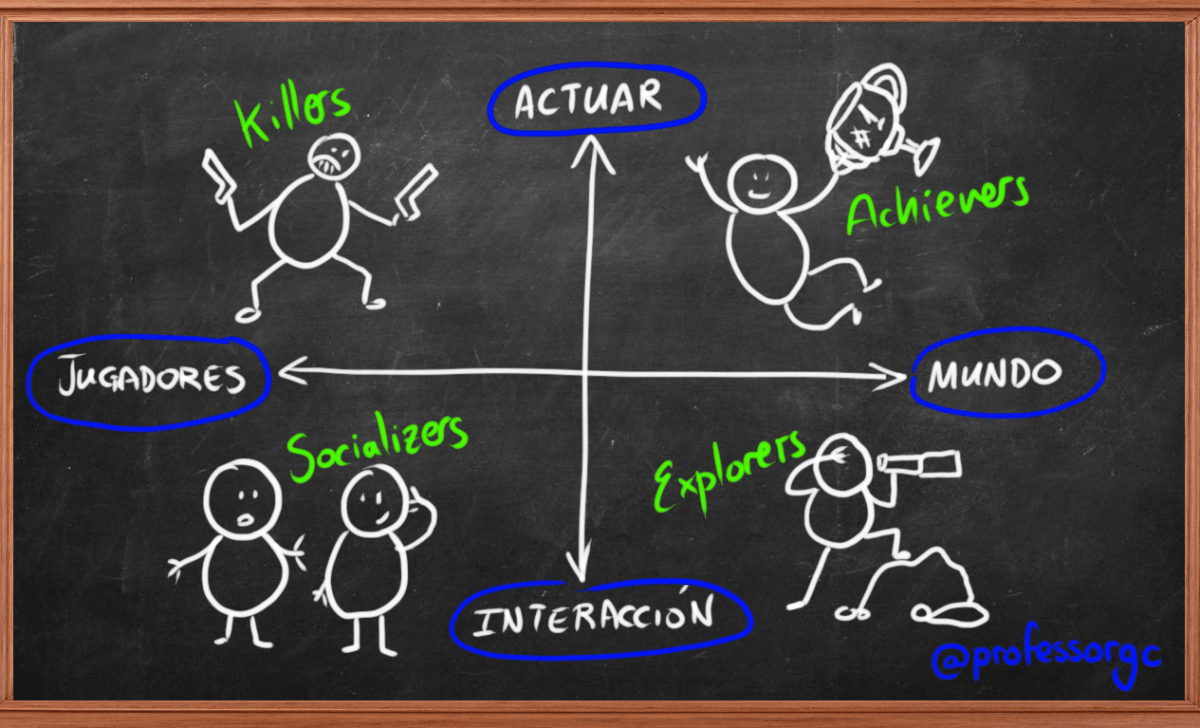 Killers
ACTUAR
#1
Achievers
JUGADORES
MUNDO
Socializers
Explorers
INTERACCIÓN
@professorgc